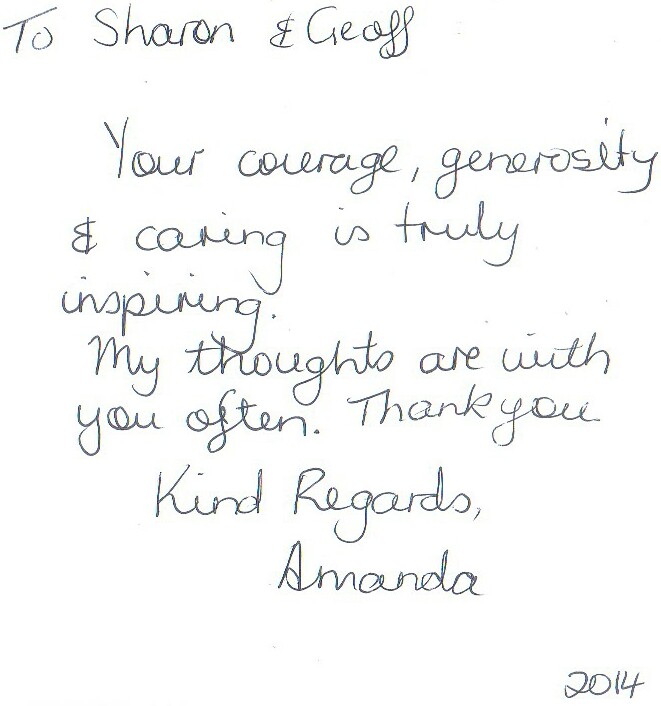 To Sharon & Geoff
Your courage, generosity
& caring is truly
inspiring.
My thoughts are with
you often. Thank you
Kind Regards,
Amanda
2014